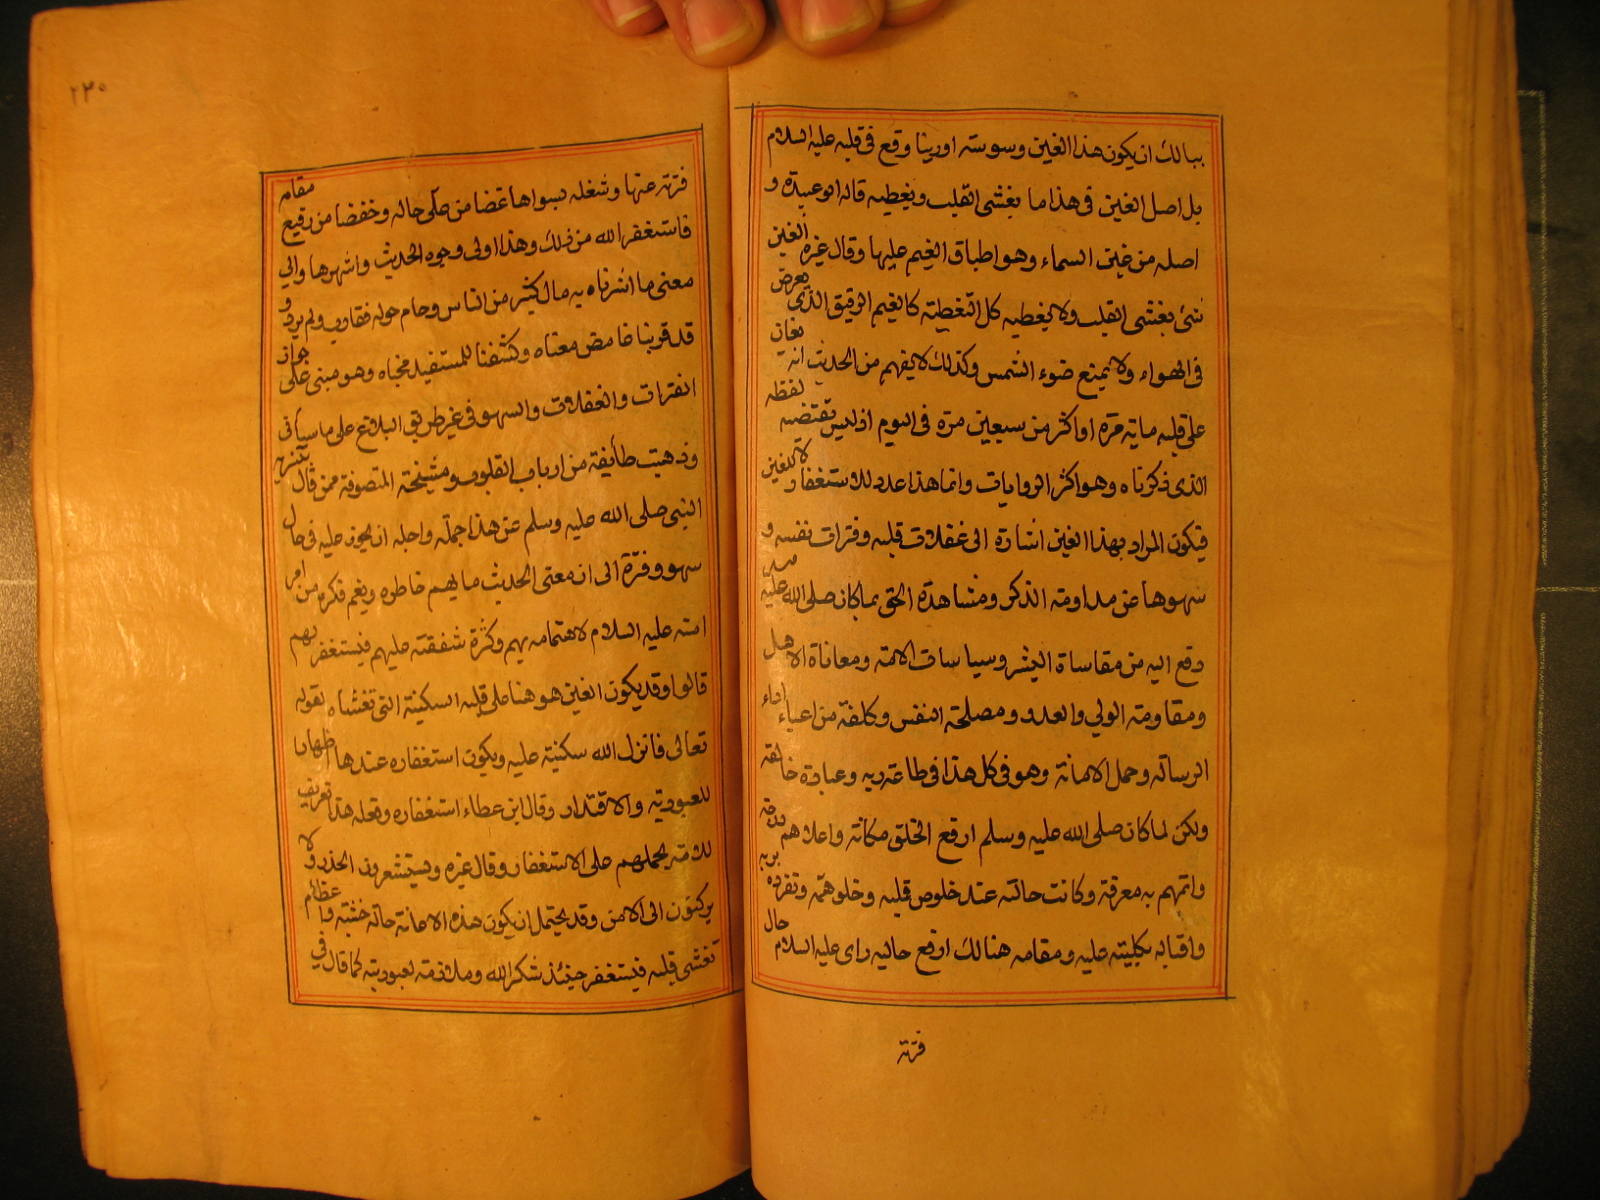 ببالك ان يكون هذا الغين وسوسة اورينا وقع فى قلبه عليه السلام
بل اصل الغين فى هذا ما يغشى القلب ويغطيه قاله ابو عبيدة و
اصله من غين السماء وهو اطباق الغيم عليها وقال غيره الغين
شئ يغشى القلب ولا يغطيه كل التغطية كالغيم الرقيق الذى يعرض
فى الهواء ولا يمنع ضوء الشمس وكذلك لا يفهم من الحديث انه يغان
على قلبه ماية مرة او اكثر من سبعين مرة فى اليوم اذ ليس يقتضيه لفظه
الذى ذكرناه وهو اكثر الروايات وانما هذا عدد للاستغفار لا للغين
فيكون المراد بهذا الغين اشارة الى غفلات قلبه وفترات نفسه و
سهوها عن مداومة الذكر ومشاهدة الحق بما كان صلى الله عليه
دفع اليه من مقاساة البشر وسياسات الامة ومعاناة الاهل
ومقاومة الولي والعدو ومصلحة النفس وكلفة من اعباء اداء
الرسالة وحمل الامانة وهو فى كل هذا فى طاعة ربه وعبادة خالقه
ولكن لما كان صلى الله عليه وسلم ارفع الخلق مكانة واعلاهم درجة
واتمهم به معرفة وكانت حالته عند خلوص قلبه وخلو همه وتفرده بربه
واقباله بكليته عليه ومقامه هنالك ارفع حاليه راى عليه السلام حال
فرته
٢٣٠
فرته عنها وشغله بسواها غضا من على حاله وخفضا من رفيع مقامه
فاستغفر الله من ذلك وهذا اولى وجوه الحديث واشهرها والي
معنى ما اشرناه به مال كثير من الناس وحام حوله فقارب ولم يرد و
قد قربنا غامض معناه وكشفنا للمستفيد محياه وهو مبنى على جواز
الفترات والغفلات والسهو فى غير طريق البلاغ على ما سيأتى
وذهبت طايفة من ارباب القلوب ومشيخة المتصوفة ممن قال بتنزيه
النبى صلى الله عليه وسلم عن هذا جملة واجله ان يجوز عليه فى حال
سهو وفترة الى ان معنى الحديث ما يهم خاطره ويغم فكره من امر
امته عليه السلام لاهتمامه بهم وكثرة شفقته عليهم فيستغفر لهم
قالوا وقد يكون الغين هو هنا على قلبه السكينة التى تغشاه لقوله
تعالى فانزل الله سكينته عليه ويكون استغفاره عندها اظهارا
للعبودية والافتقار وقال ابن عطاء استغفاره وفعله هذا تعريف
للامة يحملهم على الاستغفار وقال غيره ويستشعرون الحذر ولا
يركنون الى الامن وقد يحتمل ان يكون هذه الاغانة حالة خشية واعظام
تغشى قلبه فيستغفر حينئذ شكر الله وملازمة لعبوديته كما قال فى